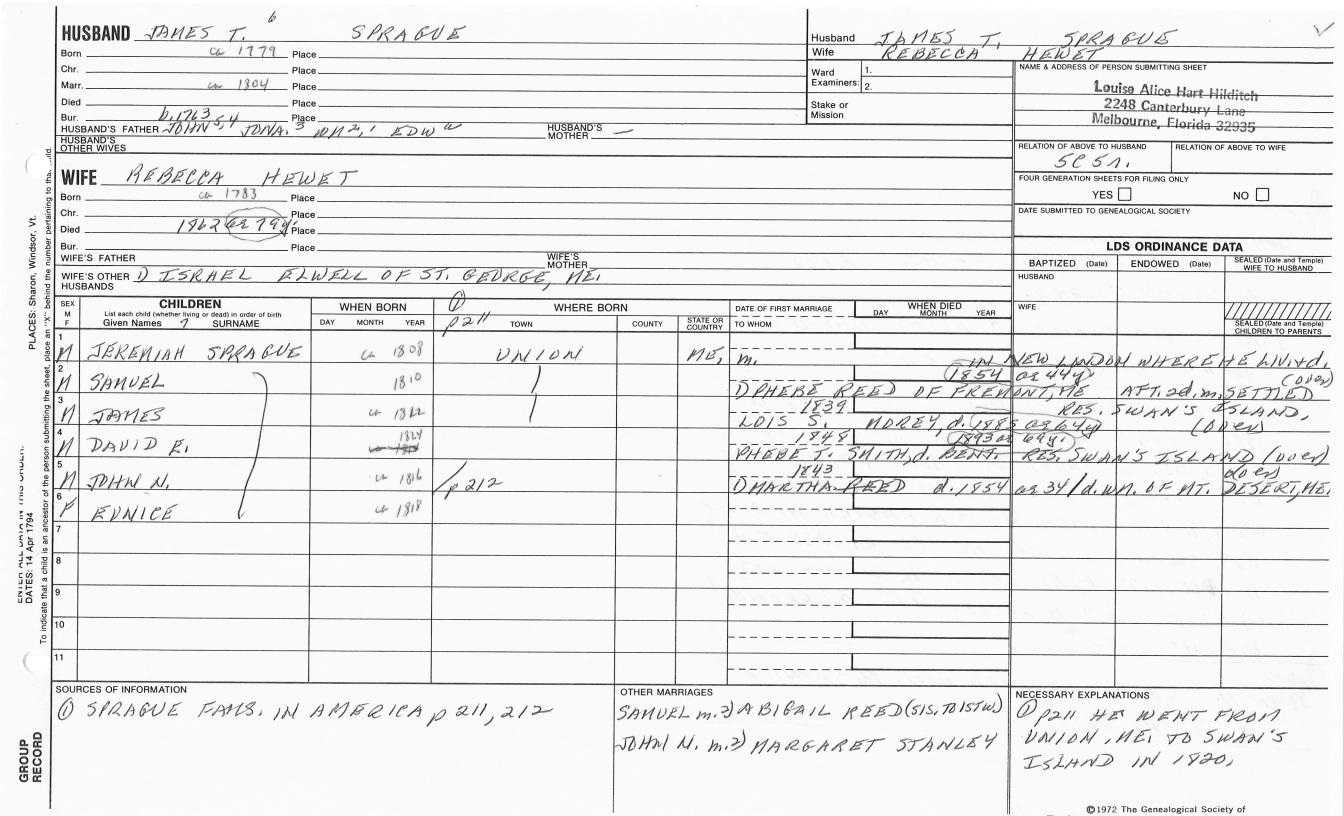 6
HUSBAND JAMES T. SPRAGUE
Born ca 1779 Place
Chr. Place
Marr. ca 1804 Place
Died Place
Bur. Place
b. 1763
HUSBAND'S FATHER JOHN 5,4 JONA. 3 WM 2,1 EDW HUSBAND'S MOTHER —
HUSBAND'S OTHER WIVES
WIFE REBECCA HEWET
Born ca 1783 Place
Chr. Place
Died 1862 ae 79y Place
Bur. Place
WIFE'S FATHER WIFE'S MOTHER
WIFE'S OTHER HUSBANDS 1) ISRAEL ELWELL OF ST. GEORGE, ME.
Husband JAMES T. SPRAGUE
Wife REBECCA HEWET
Ward Examiners: 1.
2.
Stake or Mission
NAME & ADDRESS OF PERSON SUBMITTING SHEET
Louise Alice Hart Hilditch
2248 Canterbury Lane
Melbourne, Florida 32935
RELATION OF ABOVE TO HUSBAND RELATION OF ABOVE TO WIFE
5C 5r.
FOUR GENERATION SHEETS FOR FILING ONLY
YES NO
DATE SUBMITTED TO GENEALOGICAL SOCIETY
LDS ORDINANCE DATA
BAPTIZED (Date) ENDOWED (Date) SEALED (Date and Temple) WIFE TO HUSBAND
HUSBAND
WIFE
SEALED (Date and Temple) CHILDREN TO PARENTS
SEX M F
CHILDREN
List each child (whether living or dead) in order of birth
Given Names 7 SURNAME
WHEN BORN
DAY MONTH YEAR
① p 211
WHERE BORN
TOWN COUNTY STATE OR COUNTRY
DATE OF FIRST MARRIAGE
TO WHOM
WHEN DIED
DAY MONTH YEAR
1 M JEREMIAH SPRAGUE ca 1808 UNION ME, m. IN NEW LONDON WHERE HE LIV+d.
2 M SAMUEL 1810 1854 ae 44y (over)
1) PHEBE REED OF FREMONT, ME AFT. 2d. m. SETTLED
3 M JAMES ca 1822 1839 RES. SWAN'S ISLAND,
LOIS S. MOREY, d. 1885 ae 64y (over)
4 M DAVID E. 1824 1848 1893 ae 69y.
PHEBE T. SMITH, d. BENT. RES. SWAN'S ISLAND (over)
5 M JOHN N. ca 1816 p 212 1843 over
1) MARTHA REED d. 1854 ae 34/d. WM. OF MT. DESERT, ME.
6 F EUNICE ca 1818
7
8
9
10
11
SOURCES OF INFORMATION
① SPRAGUE FAMS. IN AMERICA p 211, 212
OTHER MARRIAGES
SAMUEL m. 2) ABIGAIL REED (SIS. TO 1ST W)
JOHN N. m. 2) MARGARET STANLEY
NECESSARY EXPLANATIONS
① p 211 HE WENT FROM
UNION, ME. TO SWAN'S
ISLAND IN 1820.
©1972 The Genealogical Society of
PLACES: Sharon, Windsor, Vt.
ENTER ALL DATA IN THIS ORDER:
DATES: 14 Apr 1794
To indicate that a child is an ancestor of the person submitting the sheet, place an "X" behind the number pertaining to that child.
GROUP RECORD